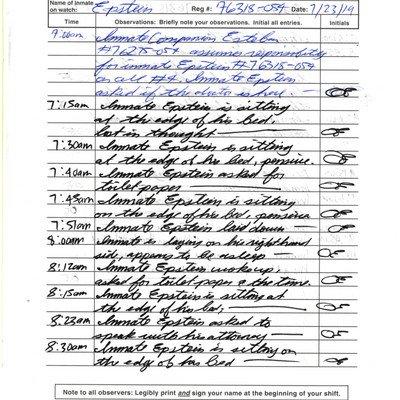 Name of Inmate on watch: Epstein Reg #: 76315-054 Date: 7/23/19
Time Observations: Briefly note your observations. Initial all entries. Initials
7:00am Inmate Companion Esteban
#76275-054 assumes responsibility
for inmate Epstein #76315-054
on cell #4. Inmate Epstein
asked if the doctor is here.
7:15am Inmate Epstein is sitting
at the edge of his bed
lost in thought
7:30am Inmate Epstein is sitting
at the edge of his bed, pensive.
7:40am Inmate Epstein asked for
toilet paper
7:43am Inmate Epstein is sitting
on the edge of his bed, pensive
7:51am Inmate Epstein laid down
8:00am Inmate is laying on his right hand
side, appears to be asleep
8:12am Inmate Epstein woke up,
asked for toilet paper & the time.
8:15am Inmate Epstein is sitting at
the edge of his bed,
8:23am Inmate Epstein asked to
speak with his attorney
8:30am Inmate Epstein is sitting on
the edge of his bed
Note to all observers: Legibly print and sign your name at the beginning of your shift.